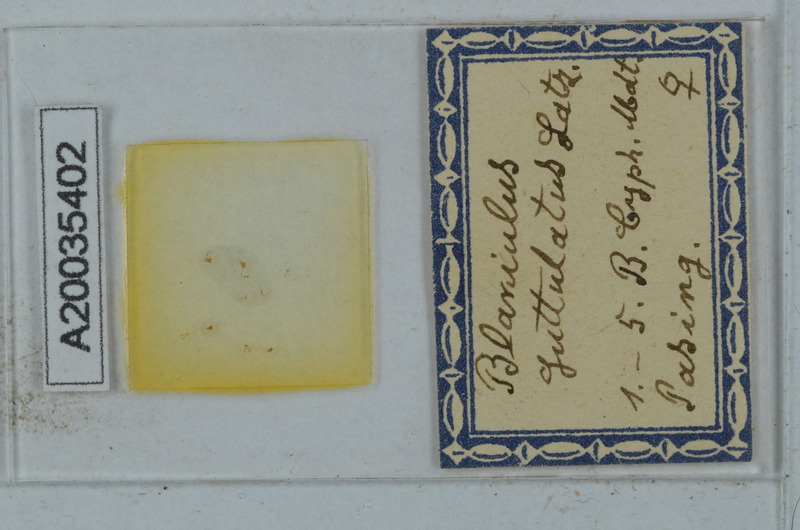 A20035402
Blaniulus
guttulatus Latz.
1.-5. B. Cyph. Mdt.
Pasing. ♀